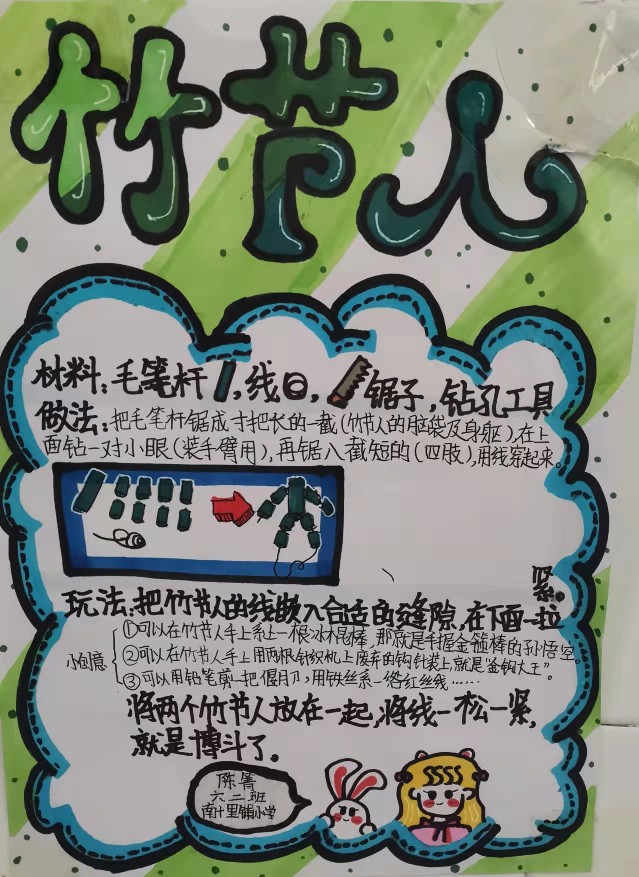 竹节人
材料:毛笔杆,线,锯子,钻孔工具
做法:把毛笔杆锯成寸把长的一截(竹节人的脑袋及身躯),在上
面钻一对小眼(装手臂用),再锯八截短的(四肢),用线穿起来。
玩法:把竹节人的线嵌入合适的缝隙,在下面一拉
紧。
小创意
①可以在竹节人手上系上一根冰棍棒,那就是手握金箍棒的孙悟空。
②可以在竹节人手上用两根针织机上废弃的钩针装上,就是"金钩大王"。
③可以用铅笔剪一把偃月刀,用铁丝系一绺红丝线……
将两个竹节人放在一起,将线一松一紧,
就是搏斗了。
陈箐
六二班
南十里铺小学